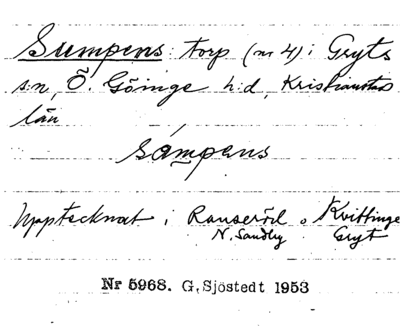 Sumpens: torp (nr 4) i Gryts
s:n, Ö. Göinge h:d, Kristianstads
län
sámpens
Upptecknat i Ranseröd o Kvittinge
N. Sandby Gryt
Nr 5968. G. Sjöstedt 1953